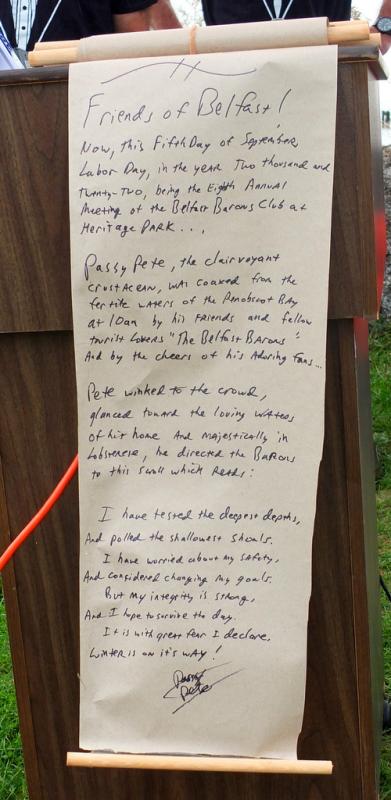 Friends of Belfast!
Now, this Fifth Day of September,
Labor Day, in the year Two thousand and
Twenty-Two, being the Eighth Annual
Meeting of the Belfast Barons Club at
Heritage PARK . . .
Passy Pete, the clairvoyant
crustacean, was coaxed from the
fertile waters of the Penobscot Bay
at 10am by his friends and fellow
tourist Lovers "The Belfast Barons"
And by the cheers of his Adoring fans...
Pete winked to the crowd,
glanced toward the loving waters
of his home And majestically in
Lobsterese, he directed the Barons
to this scroll which Reads:
I have tested the deepest depths,
And polled the shallowest shoals.
I have worried about my safety,
And considered changing my goals.
But my integrity is strong,
And I hope to survive the day.
It is with great fear I declare,
Winter is on it's way!
Passy
Pete